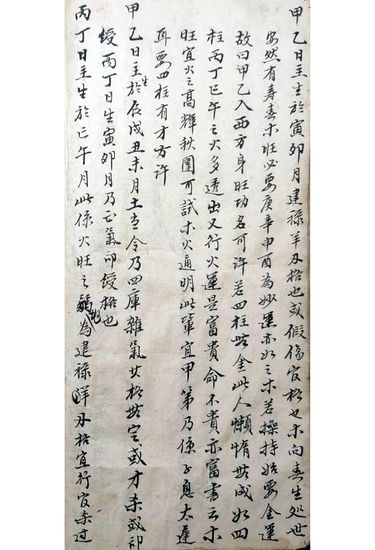 甲乙日主生於寅卯月建禄羊刃格也或假傷官格也木向春生処世
安然有寿春木旺必要庚辛申酉為妙運亦如三木若操持始要金運
故曰甲乙入西方身旺功名可许若四柱無金此人懒惰無成如四
柱丙丁巳午之火多透出又行火運是富貴命不貴亦富書云木
旺宜火之高輝秋闱可試木火通明此輩宜甲第乃係子息太遲
耳要四柱有才方许
甲乙日主生於辰戌丑未月土当令乃四庫雜氣其格無定或才杀或印
绶丙丁日生寅卯月乃正氣印绶格也
丙丁日主生於巳午月此係火旺之為建禄洋刃格宜行官杀过